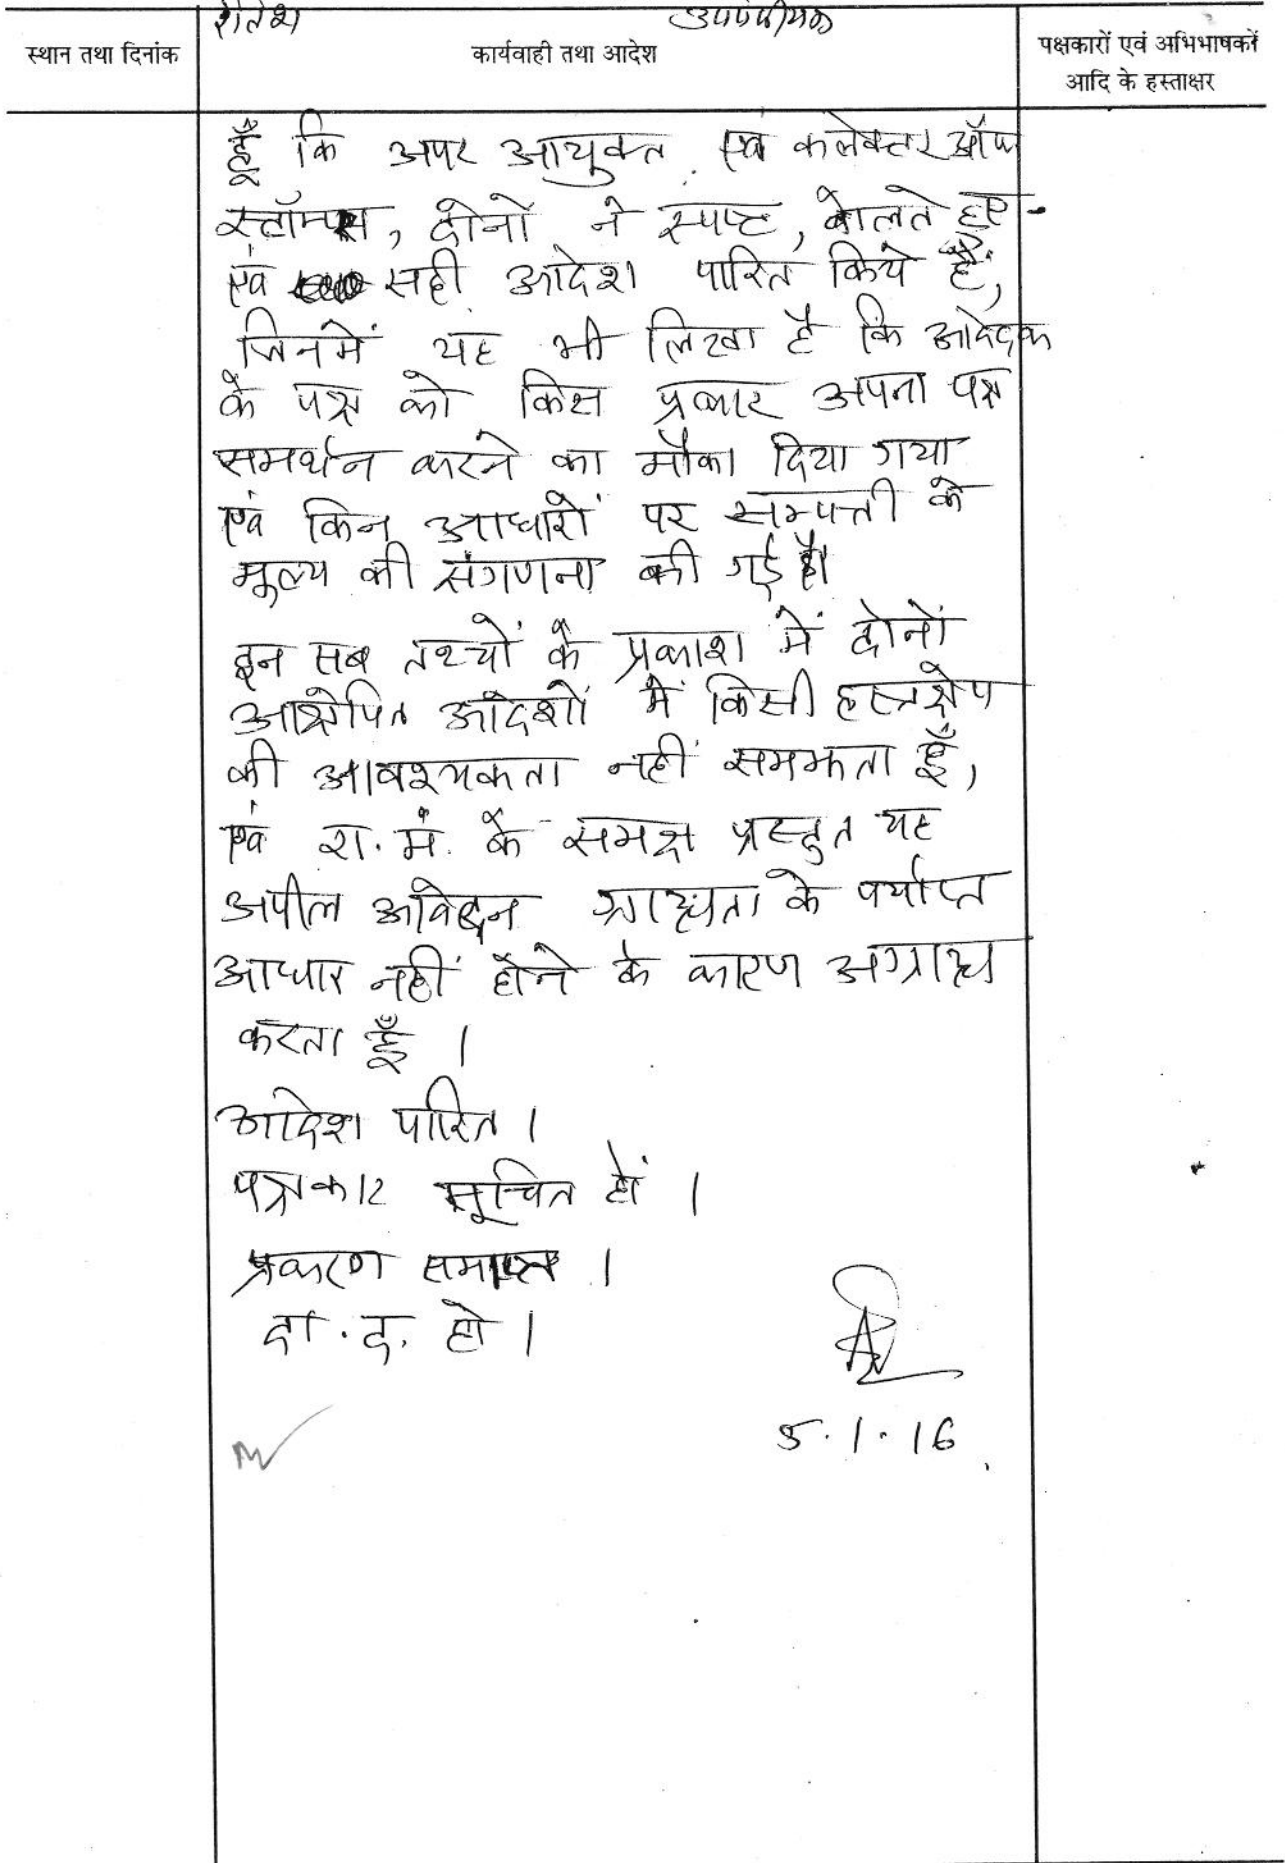 रीतेश उपपंजीयक
स्थान तथा दिनांक
कार्यवाही तथा आदेश
पक्षकारों एवं अभिभाषकों
आदि के हस्ताक्षर
हूँ कि अपर आयुक्त एवं कलेक्टर ऑफ
स्टॉम्पस, दोनों ने स्पष्ट, बोलते हुए
एवं सही आदेश पारित किये हैं,
जिनमें यह भी लिखा है कि आवेदक
के पक्ष को किस प्रकार अपना पक्ष
समर्थन करने का मौका दिया गया
एवं किन आधारों पर सम्पत्ती के
मूल्य की संगणना की गई है।
इन सब तथ्यों के प्रकाश में दोनों
आक्षेपित आदेशों में किसी हस्तक्षेप
की आवश्यकता नहीं समझता हूँ,
एवं रा. मं. के समक्ष प्रस्तुत यह
अपील आवेदन ग्राह्यता के पर्याप्त
आधार नहीं होने के कारण अग्राह्य
करता हूँ ।
आदेश पारित ।
पक्षकार सूचित हों ।
प्रकरण समाप्त ।
दा. द. हो ।
5.1.16